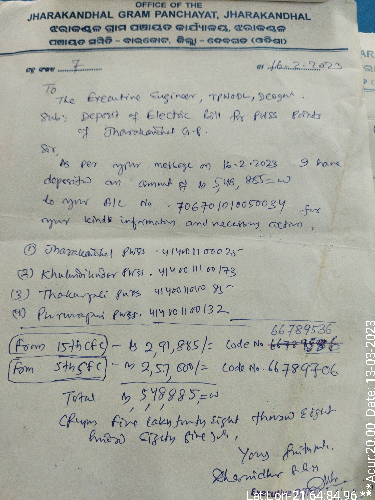 OFFICE OF THE
JHARAKANDHAL GRAM PANCHAYAT, JHARAKANDHAL
ଝରାକନ୍ଧାଲ ଗ୍ରାମ ପଞ୍ଚାୟତ କାର୍ଯ୍ୟାଳୟ, ଝରାକନ୍ଧାଲ
ପଞ୍ଚାୟତ ସମିତି - ବାରକୋଟ, ଜିଲ୍ଲା - ଦେବଗଡ (ଓଡିଶା)
7 16.2.2023
To
The Executive Engineer, TPWODL, Deogarh
Sub: Deposit of Electric bill for PWSS Points
of Jharakandhal G.P.
Sir,
As per your message on 16-2-2023 I have
deposited an amount of Rs 5,48,885=00
to your A/C No. 706701010050034 for
your kind information and necessary action.
(1) Jharakandhal PWSS. 414001100025
(2) PWSS. 414001100173
(3) PWSS
(4) PWSS. 414001100132
66789536
From 15th CFC - Rs 2,91,885/= Code No.
From 5th SFC - Rs 2,57,000/= Code No. 66789706
Total Rs 5,48,885=00
(Rupees five lakhs forty eight thousand eight
hundred eighty five) only.
Yours faithfully
Lat Lon-21.64 84.96 ***Acur 20.00, Date, 13-03-2023